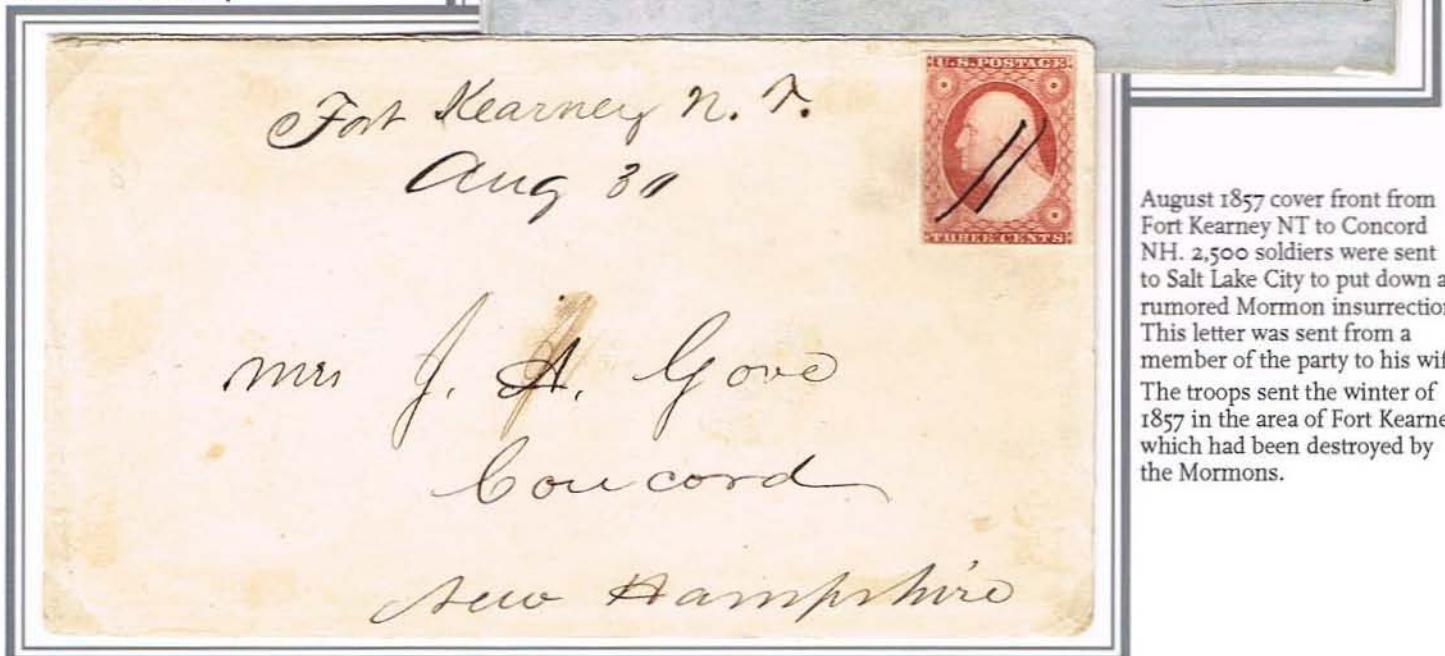 Fort Kearney N. T.
Aug 30
U.S. POSTAGE
THREE CENTS
Mrs J. A. Gove
Concord
New Hampshire
August 1857 cover front from
Fort Kearney NT to Concord
NH. 2,500 soldiers were sent
to Salt Lake City to put down a
rumored Mormon insurrection
This letter was sent from a
member of the party to his wif
The troops sent the winter of
1857 in the area of Fort Kearne
which had been destroyed by
the Mormons.